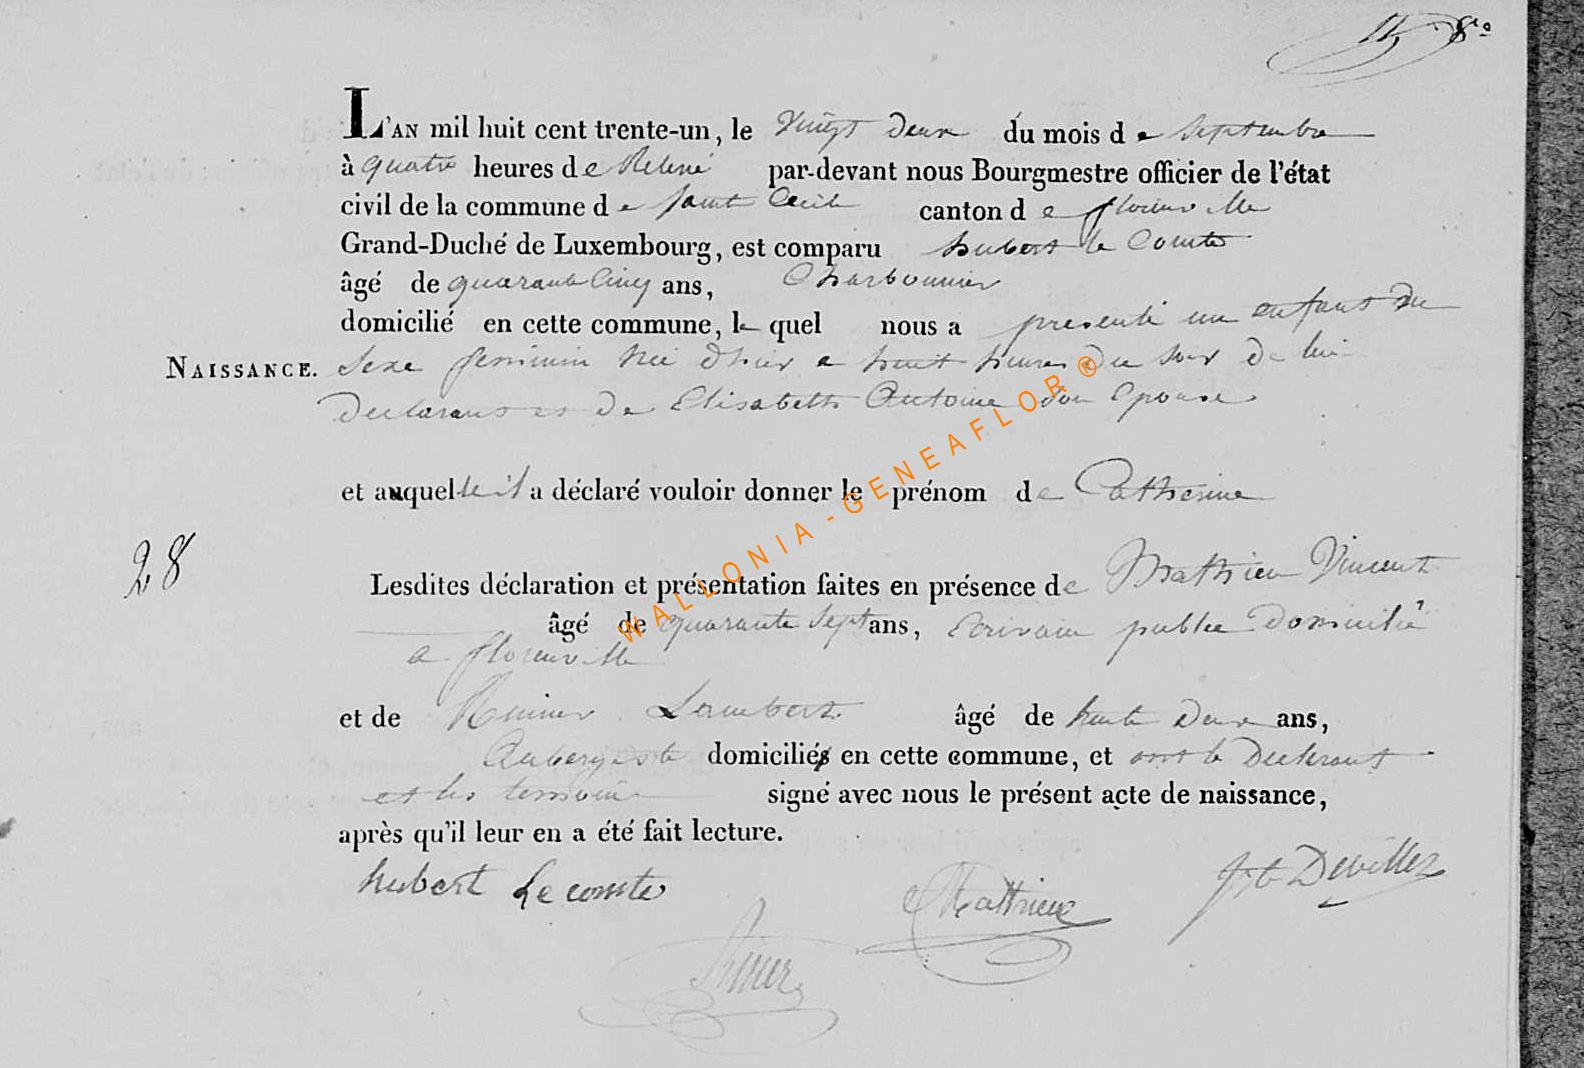 8º
L'AN mil huit cent trente-un, le Vingt deux du mois de Septembre
à quatre heures de Relevé par-devant nous Bourgmestre officier de l'état
civil de la commune de Saint Cecile canton de florenville
Grand-Duché de Luxembourg, est comparu hubert le Comte
âgé de quarante Cinq ans, Charbonnier
domicilié en cette commune, le quel nous a presenté un enfant du
NAISSANCE. Sexe feminin née d'hier a huit heures du soir de lui
declarant et de Elisabeth Antoine son Epouse
et auquelle il a déclaré vouloir donner le prénom de Catherine
28
Lesdites déclaration et présentation faites en présence de Mathieu Vincent
âgé de quarante sept ans, Ecrivain public domicilié
a florenville
et de Lambert âgé de trente deux ans,
Aubergiste domiciliés en cette commune, et ont le Declarant
et les temoins signé avec nous le présent acte de naissance,
après qu'il leur en a été fait lecture.
hubert Le comte Mathieu Devillez
WALLONIA-GENEAFLOR®